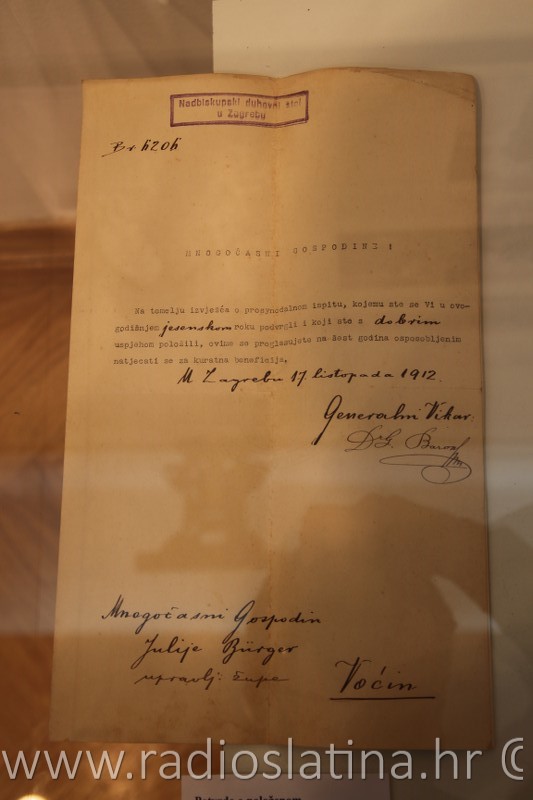 Nadbiskupski duhovni stol
u Zagrebu
Br. 6206
MNOGOČASNI GOSPODINE!
Na temelju izvješća o prosynodalnom ispitu, kojemu ste se Vi u ovo-
godišnjem jesenskom roku podvrgli i koji ste s dobrim
uspjehom položili, ovime se proglasujete na šest godina osposobljenim
natjecati se za kuratna beneficija.
U Zagrebu 17 listopada 1912.
Generalni Vikar:
Dr G.
Mnogočasni Gospodin
Julije Bürger
upravlj. župe
Voćin
www.radioslatina.hr ©
Potvrda o položenom